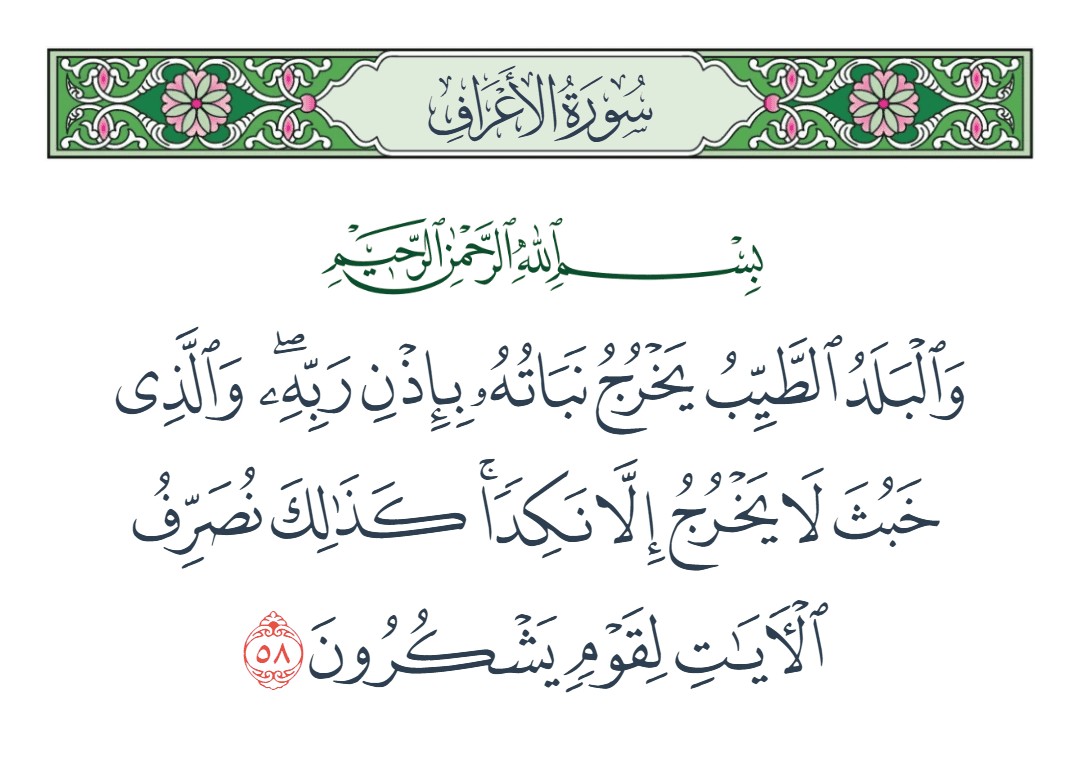 سُورَةُ الأَعْرَافِ
بِسْمِ ٱللَّهِ ٱلرَّحْمَٰنِ ٱلرَّحِيمِ
وَٱلْبَلَدُ ٱلطَّيِّبُ يَخْرُجُ نَبَاتُهُۥ بِإِذْنِ رَبِّهِۦۖ وَٱلَّذِى
خَبُثَ لَا يَخْرُجُ إِلَّا نَكِدًاۚ كَذَٰلِكَ نُصَرِّفُ
ٱلْـَٔايَـٰتِ لِقَوْمٍ يَشْكُرُونَ ٥٨